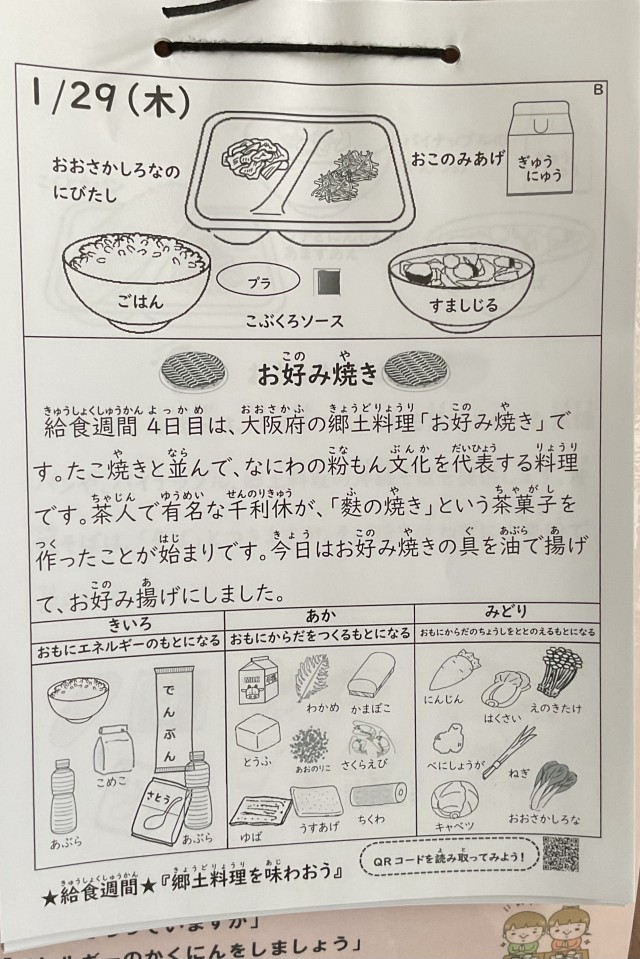 1/29(木)
B
おおさかしろなの
にびたし
おこのみあげ
ぎゅう
にゅう
ごはん
プラ
こぶくろソース
すましじる
お好み焼き
給食週間 4日目は、大阪府の郷土料理「お好み焼き」で
す。たこ焼きと並んで、なにわの粉もん文化を代表する料理
です。茶人で有名な千利休が、「麩の焼き」という茶菓子を
作ったことが始まりです。今日はお好み焼きの具を油で揚げ
て、お好み揚げにしました。
きいろ
おもにエネルギーのもとになる
でんぷん
こめこ
さとう
あぶら
あぶら
あか
おもにからだをつくるもとになる
MILK
わかめ
かまぼこ
とうふ
あおのりこ
さくらえび
ゆば
うすあげ
ちくわ
みどり
おもにからだのちょうしをととのえるもとになる
にんじん
はくさい
えのきたけ
べにしょうが
ねぎ
キャベツ
おおさかしろな
QRコードを読み取ってみよう!
★給食週間★『郷土料理を味わおう』
していますか」
ルギーのかくにんをしましょう」